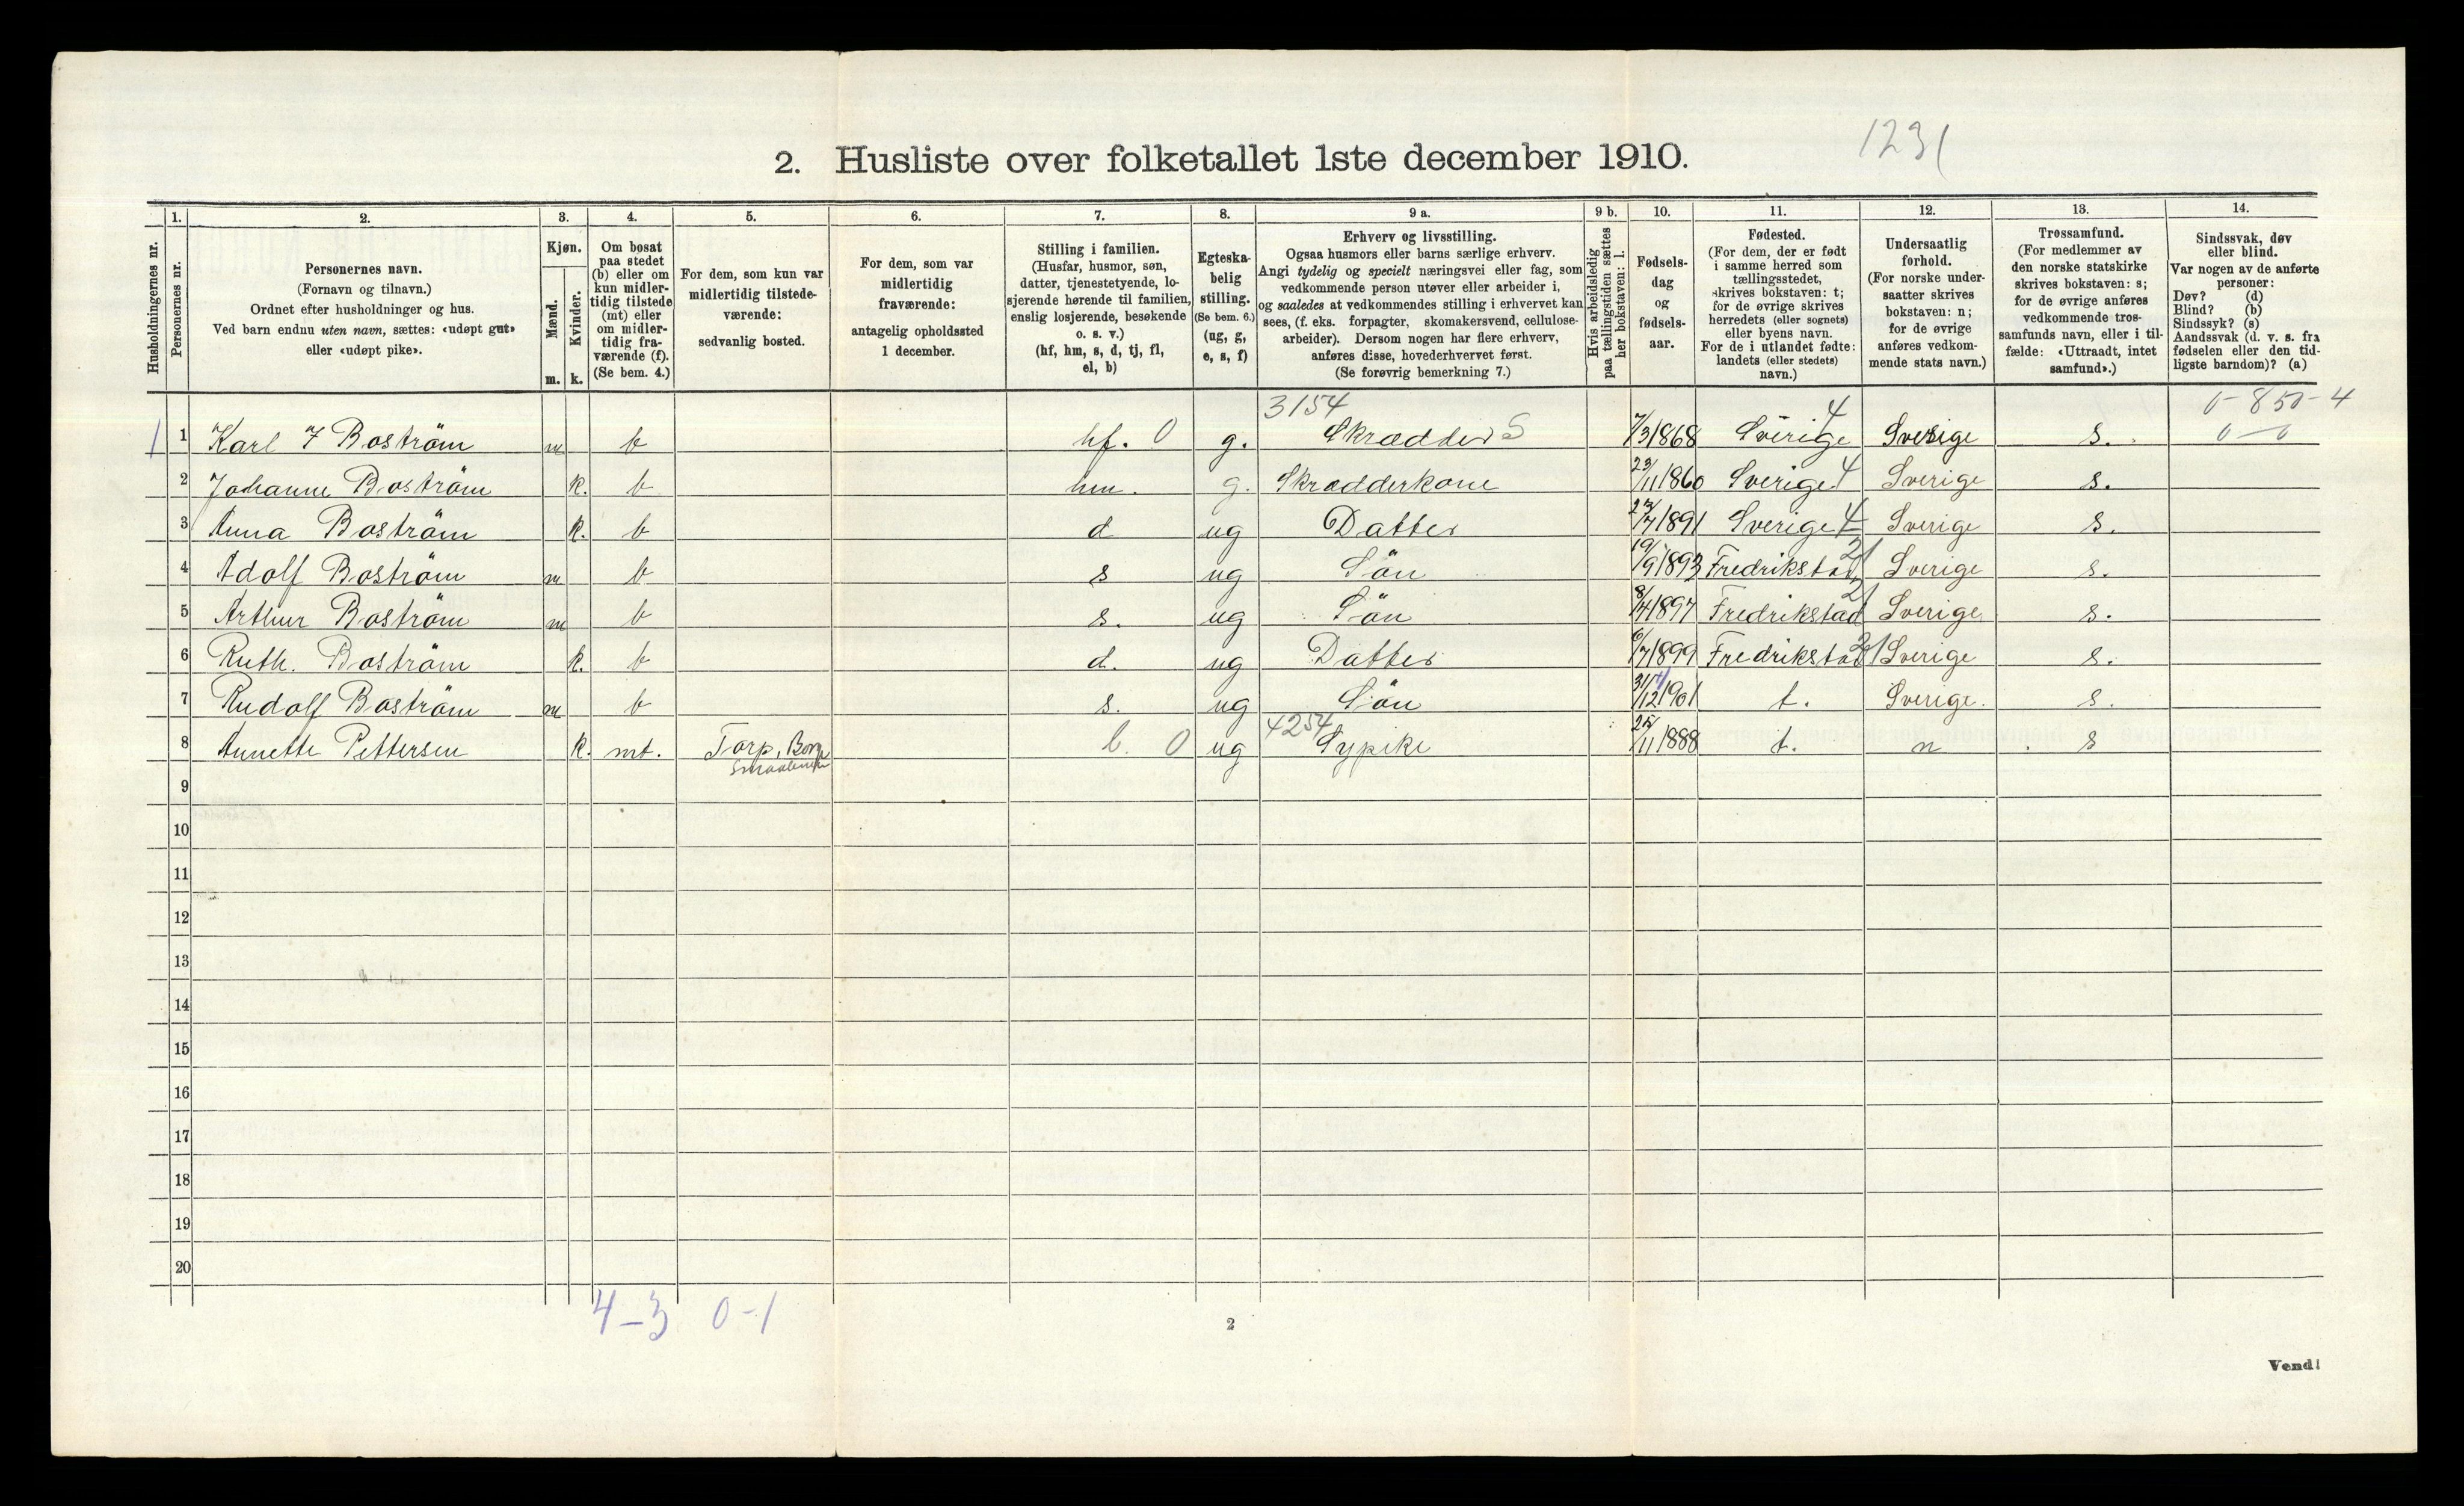 1231
2. Husliste over folketallet 1ste december 1910.
Husholdningernes nr.
1. Personernes nr.
2. Personernes navn.
(Fornavn og tilnavn.)
Ordnet efter husholdninger og hus.
Ved barn endnu uten navn, sættes: «udøpt gut»
eller «udøpt pike».
3. Kjøn.
Mænd. m.
Kvinder. k.
4. Om bosat
paa stedet
(b) eller om
kun midler-
tidig tilstede
(mt) eller
om midler-
tidig fra-
værende (f).
(Se bem. 4.)
5. For dem, som kun var
midlertidig tilstede-
værende:
sedvanlig bosted.
6. For dem, som var
midlertidig
fraværende:
antagelig opholdssted
1 december.
7. Stilling i familien.
(Husfar, husmor, søn,
datter, tjenestetyende, lo-
sjerende hørende til familien,
enslig losjerende, besøkende
o. s. v.)
(hf, hm, s, d, tj, fl,
el, b)
8. Egteska-
belig
stilling.
(Se bem. 6.)
(ug, g,
e, s, f)
9 a. Erhverv og livsstilling.
Ogsaa husmors eller barns særlige erhverv.
Angi tydelig og specielt næringsvei eller fag, som
vedkommende person utøver eller arbeider i,
og saaledes at vedkommendes stilling i erhvervet kan
sees, (f. eks. forpagter, skomakersvend, cellulose-
arbeider). Dersom nogen har flere erhverv,
anføres disse, hovederhvervet først.
(Se forøvrig bemerkning 7.)
9 b. Hvis arbeidsledig
paa tællingstiden sættes
her bokstaven: l.
10. Fødsels-
dag
og
fødsels-
aar.
11. Fødested.
(For dem, der er født
i samme herred som
tællingsstedet,
skrives bokstaven: t;
for de øvrige skrives
herredets (eller sognets)
eller byens navn.
For de i utlandet fødte:
landets (eller stedets)
navn.)
12. Undersaatlig
forhold.
(For norske under-
saatter skrives
bokstaven: n;
for de øvrige
anføres vedkom-
mende stats navn.)
13. Trossamfund.
(For medlemmer av
den norske statskirke
skrives bokstaven: s;
for de øvrige anføres
vedkommende tros-
samfunds navn, eller i til-
fælde: «Uttraadt, intet
samfund».)
14. Sindssvak, døv
eller blind.
Var nogen av de anførte
personer:
Døv? (d)
Blind? (b)
Sindssyk? (s)
Aandssvak (d. v. s. fra
fødselen eller den tid-
ligste barndom)? (a)
3154 4 0-850-4
1 1 Karl F Boström m b hf. 0 g. Skrædder S 7/3 1868 Sverige Sverige s. 0-0
2 Johanne Boström k. b hm. g. Skrædderkone 23/11 1860 Sverige 4 Sverige s.
3 Anna Boström k. b d ug Datter 27/7 1891 Sverige 4 Sverige s.
4 Adolf Boström m b s ug Sön 19/9 1893 Fredrikstad 21 Sverige s.
5 Arthur Boström m b s. ug Sön 8/4 1897 Fredrikstad 21 Sverige s.
6 Ruth. Boström k. b d. ug Datter 6/7 1899 Fredrikstad 21 Sverige s.
7 Rudolf Boström m b s. ug Sön 31/12 1901 t. Sverige. s.
8 Annette Pettersen k. mt. Torp, Borge Smaalenene b. 0 ug 4254 Sypike 25/11 1888 t. n s
9
10
11
12
13
14
15
16
17
18
19
20
4-3 0-1
2
Vend!